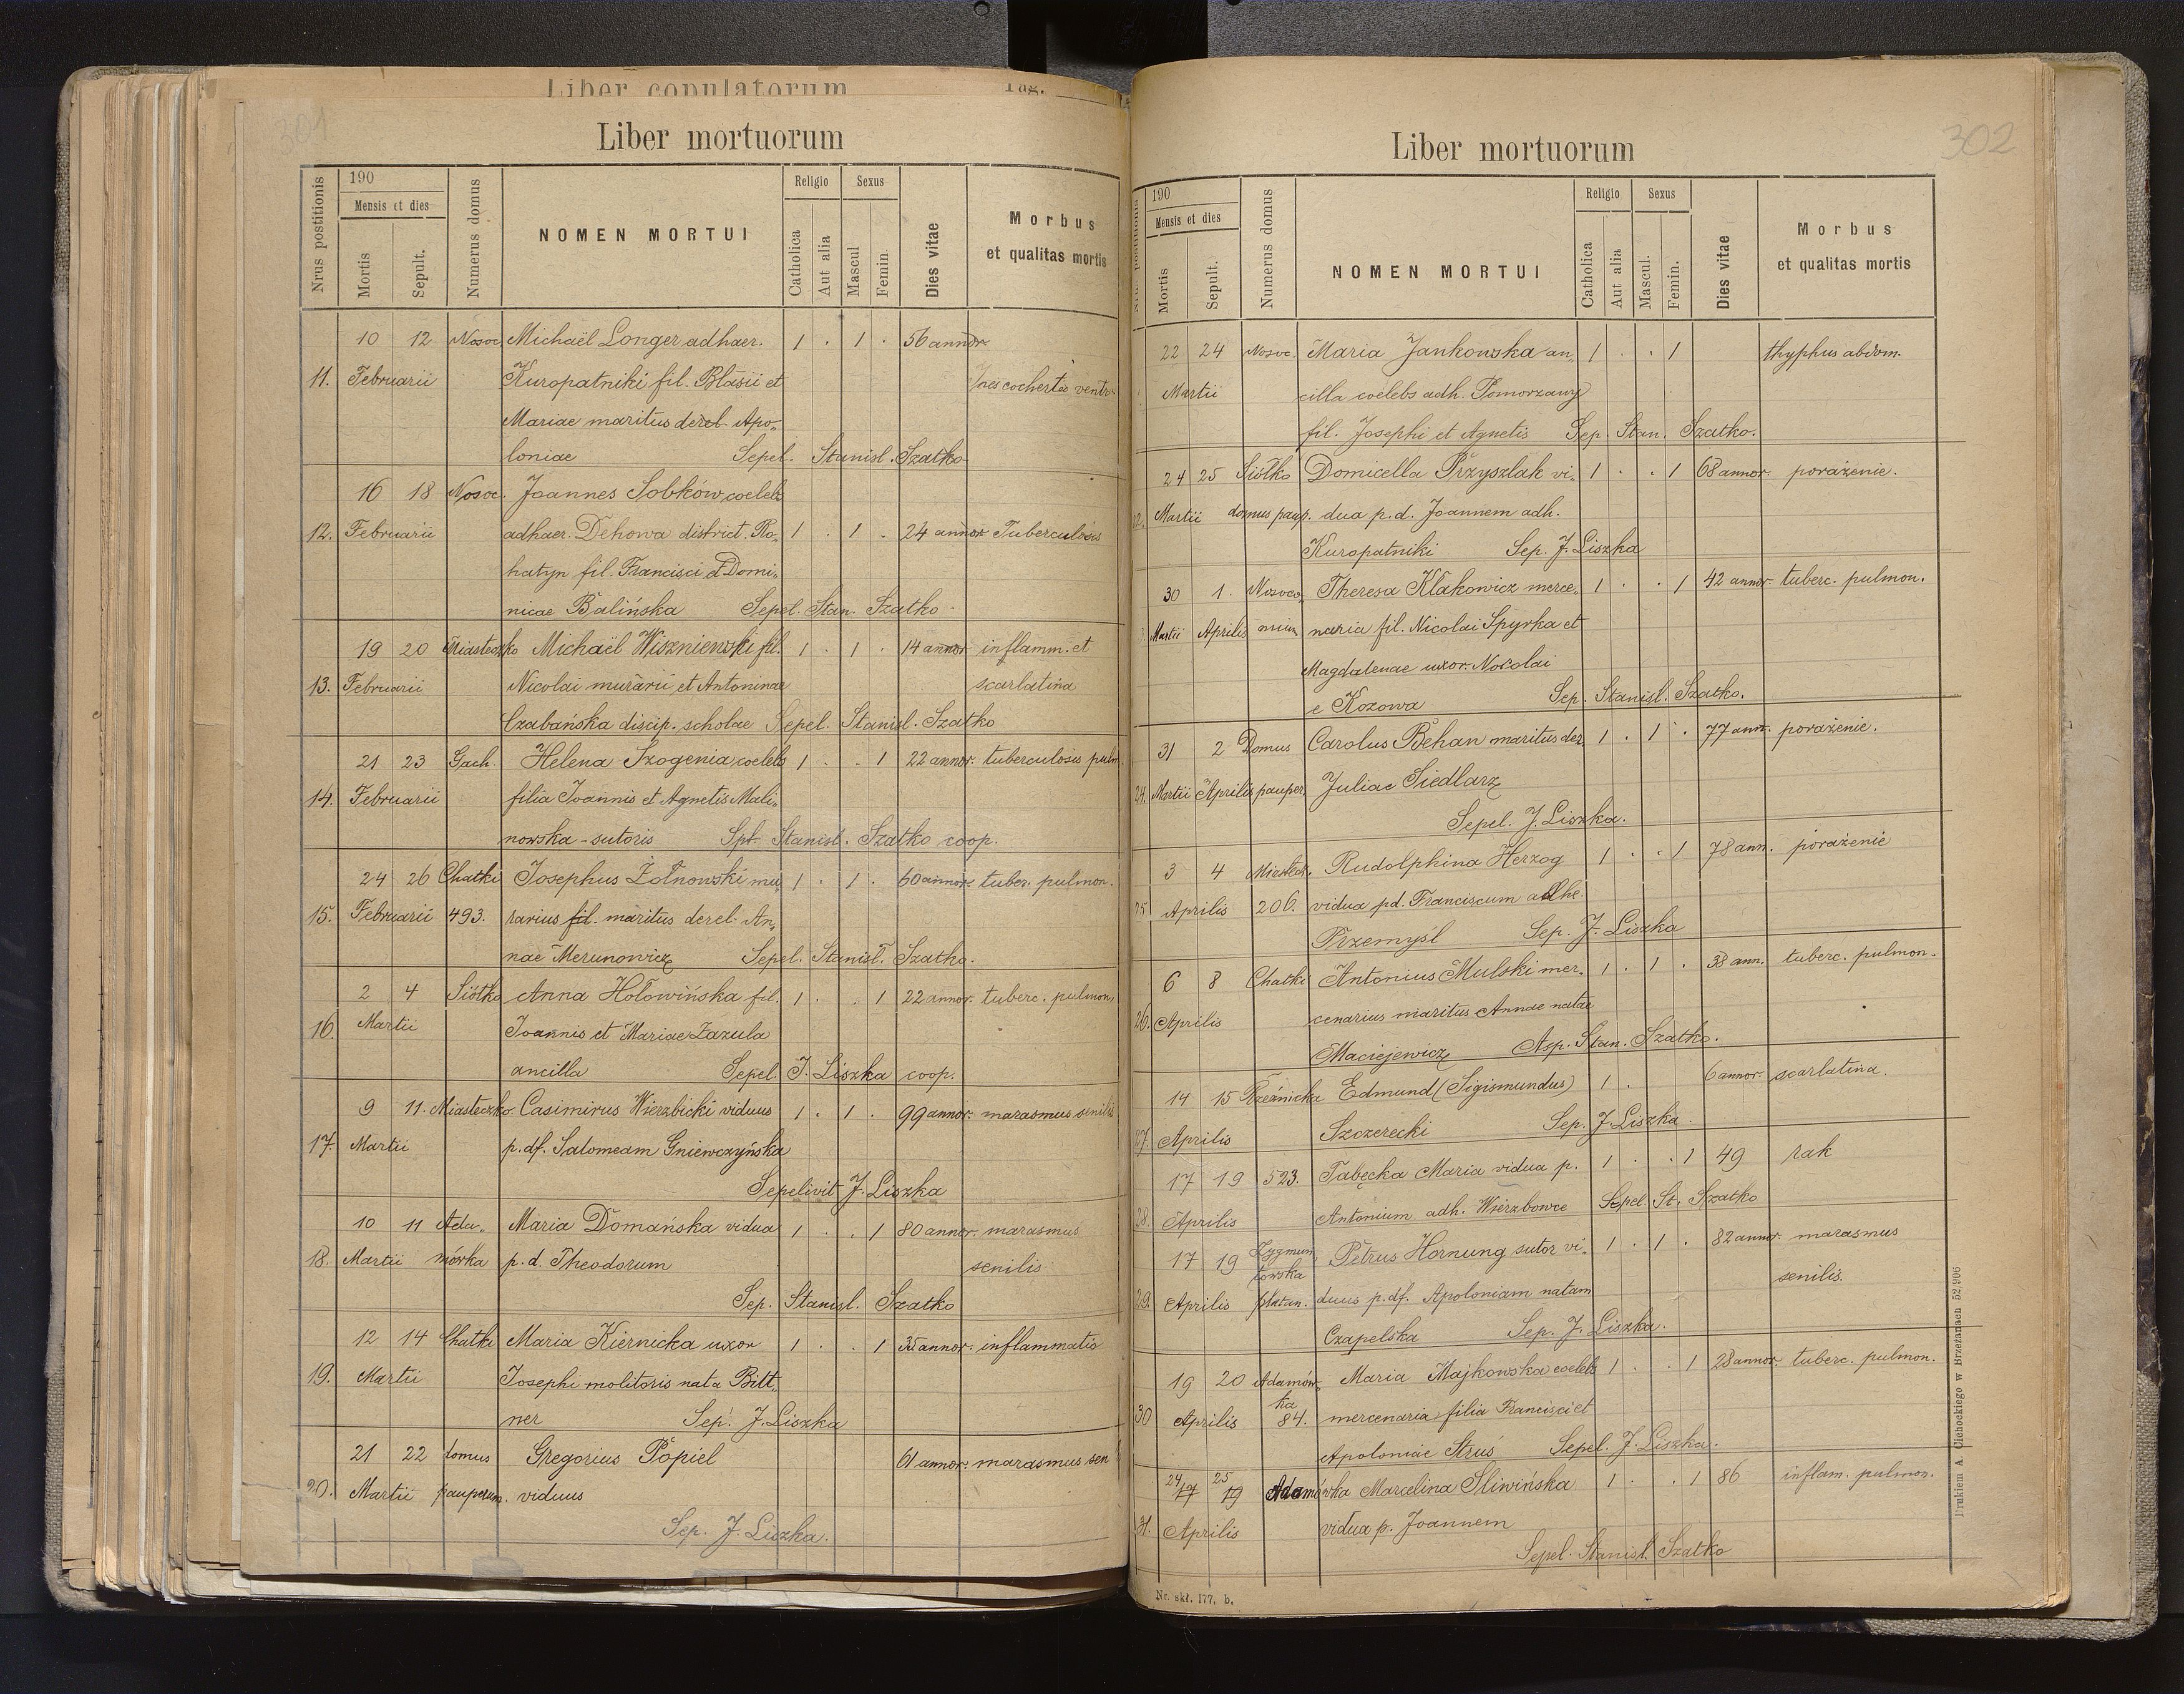 Liber copulatorum Pag.
301
Liber mortuorum
Nrus postitionis
190
Mensis et dies
Mortis
Sepult.
Numerus domus
NOMEN MORTUI
Religio
Catholica
Aut alia
Sexus
Mascul
Femin.
Dies vitae
Morbus
et qualitas mortis
10 12 Nosoc. Michaël Longer adhaer. 1 . 1 . 56 annor.
11. Februarii Kuropatniki fil. Blasii et
Mariae maritus derel. Apo-
loniae Sepel. Stanisl. Szatko
16 18 Nosoc. Joannes Sobków coelebs
12. Februarii adhaer. Dehowa district. Ro- 1 . 1 . 24 annor Tuberculosis
hatyn fil. Francisci et Domi-
nicae Balińska Sepel. Stan. Szatko.
19 20 Miasteczko Michaël Wiszniewski fil. 1 . 1 . 14 annor inflamm. et
13. Februarii Nicolai murarii et Antoninae scarlatina
Czabańska discip. scholae Sepel. Stanisl. Szatko
21 23 Gach. Helena Szogenia coelebs 1 . . 1 22 annor. tuberculosis pulm.
14. Februarii filia Joannis et Agnetis Mali-
nowska - sutoris Spt. Stanisl. Szatko coop.
24 26 Chatki Josephus Żołnowski mu- 1 . 1 . 60 annor. tuber. pulmon.
15. Februarii 493. rarius fil. maritus derel. An-
nae Merunowicz Sepel. Stanisl. Szatko.
2 4 Siółko Anna Hołowińska fil. 1 . . 1 22 annor. tuberc. pulmon.
16. Martii Joannis et Mariae Zazula
ancilla Sepel. J. Liszka coop.
9 11. Miasteczko. Casimirus Wierzbicki viduus 1 . 1 . 99 annor. marasmus senilis
17. Martii p. df. Salomeam Gniewczyńska
Sepelivit J. Liszka
10 11 Ada- Maria Domańska vidua 1 . . 1 80 annor. marasmus
18. Martii mówka p. d. Theodorum senilis
Sep. Stanisl. Szatko
12 14 Chatki Maria Kiernicka uxor 1 . . 1 35 annor. inflammatio
19. Martii Josephi molitoris nata Bitt-
ner Sep. J. Liszka
21 22 domus Gregorius Popiel 61 annor. marasmus sen
20. Martii pauperum. viduus
Sep. J. Liszka.
302
Liber mortuorum
190
Mensis et dies
Mortis
Sepult.
Numerus domus
NOMEN MORTUI
Religio
Catholica
Aut alia
Sexus
Mascul.
Femin.
Dies vitae
Morbus
et qualitas mortis
22 24 Nosoc. Maria Jankowska an- 1 . . 1 thyphus abdom.
Martii cilla coelebs adh. Pomorzany
fil. Josephi et Agnetis Sep. Stan. Szatko.
24 25 Siółko Domicella Przyszlak vi- 1 . . 1 68 annor. porażenie.
Martii domus paup. dua p. d. Joannem adh.
Kuropatniki Sep. J. Liszka
30 1. Theresa Klakowicz merce- 1 . . 1 42 annor. tuberc. pulmon.
Martii Aprilis naria fil. Nicolai Spyrka et
Magdalenae uxor. Nocolai
e Kozowa Sep. Stanisl. Szatko.
31 2 Domus Carolus Behan maritus der. 1 . 1 . 77 ann. porażenie.
24. Martii Aprilis pauper. Juliae Siedlarz
Sepel. J. Liszka.
3 4 Miasteck. Rudolphina Herzog 1 . . 1 78 ann. porażenie
25. Aprilis 206. vidua pd. Franciscum adhe.
Przemyśl Sep. J. Liszka
6 8 Chatki Antonius Mulski mer- 1 . 1 . 38 ann. tuberc. pulmon.
26. Aprilis cenarius maritus Annae natae
Maciejewicz Stan. Szatko.
14 15 Rzeźnicka Edmund (Sigismundus) 1 . 6 annor. scarlatina.
27. Aprilis Szczerecki Sep. J. Liszka.
17 19 523. Tabęcka Maria vidua p. 1 . . 1 49 rak
28. Aprilis Antonium adh. Wierzbowce Sepel. St. Szatko
17 19 Zygmun- Petrus Hornung sutor vi- 1 . 1 . 82 annor. marasmus
towska senilis.
29. Aprilis duus p. df. Apoloniam natam
Czapelska Sep. J. Liszka.
19 20 Adamów- Maria Majkowska coelebs 1 . . 1 28 annor. tuberc. pulmon.
ka
30 Aprilis 84. mercenaria filia Francisci et
Apoloniae Struś Sepel. J. Liszka.
24 25
17 19 Adamówka Marcelina Śliwińska 1 . . 1 86 inflam. pulmon.
31. Aprilis vidua p. Joannem
Sepel. Stanisl. Szatko
Nr. skł. 177. b.
Drukiem A. Cichockiego w Brzeżanach 52.906